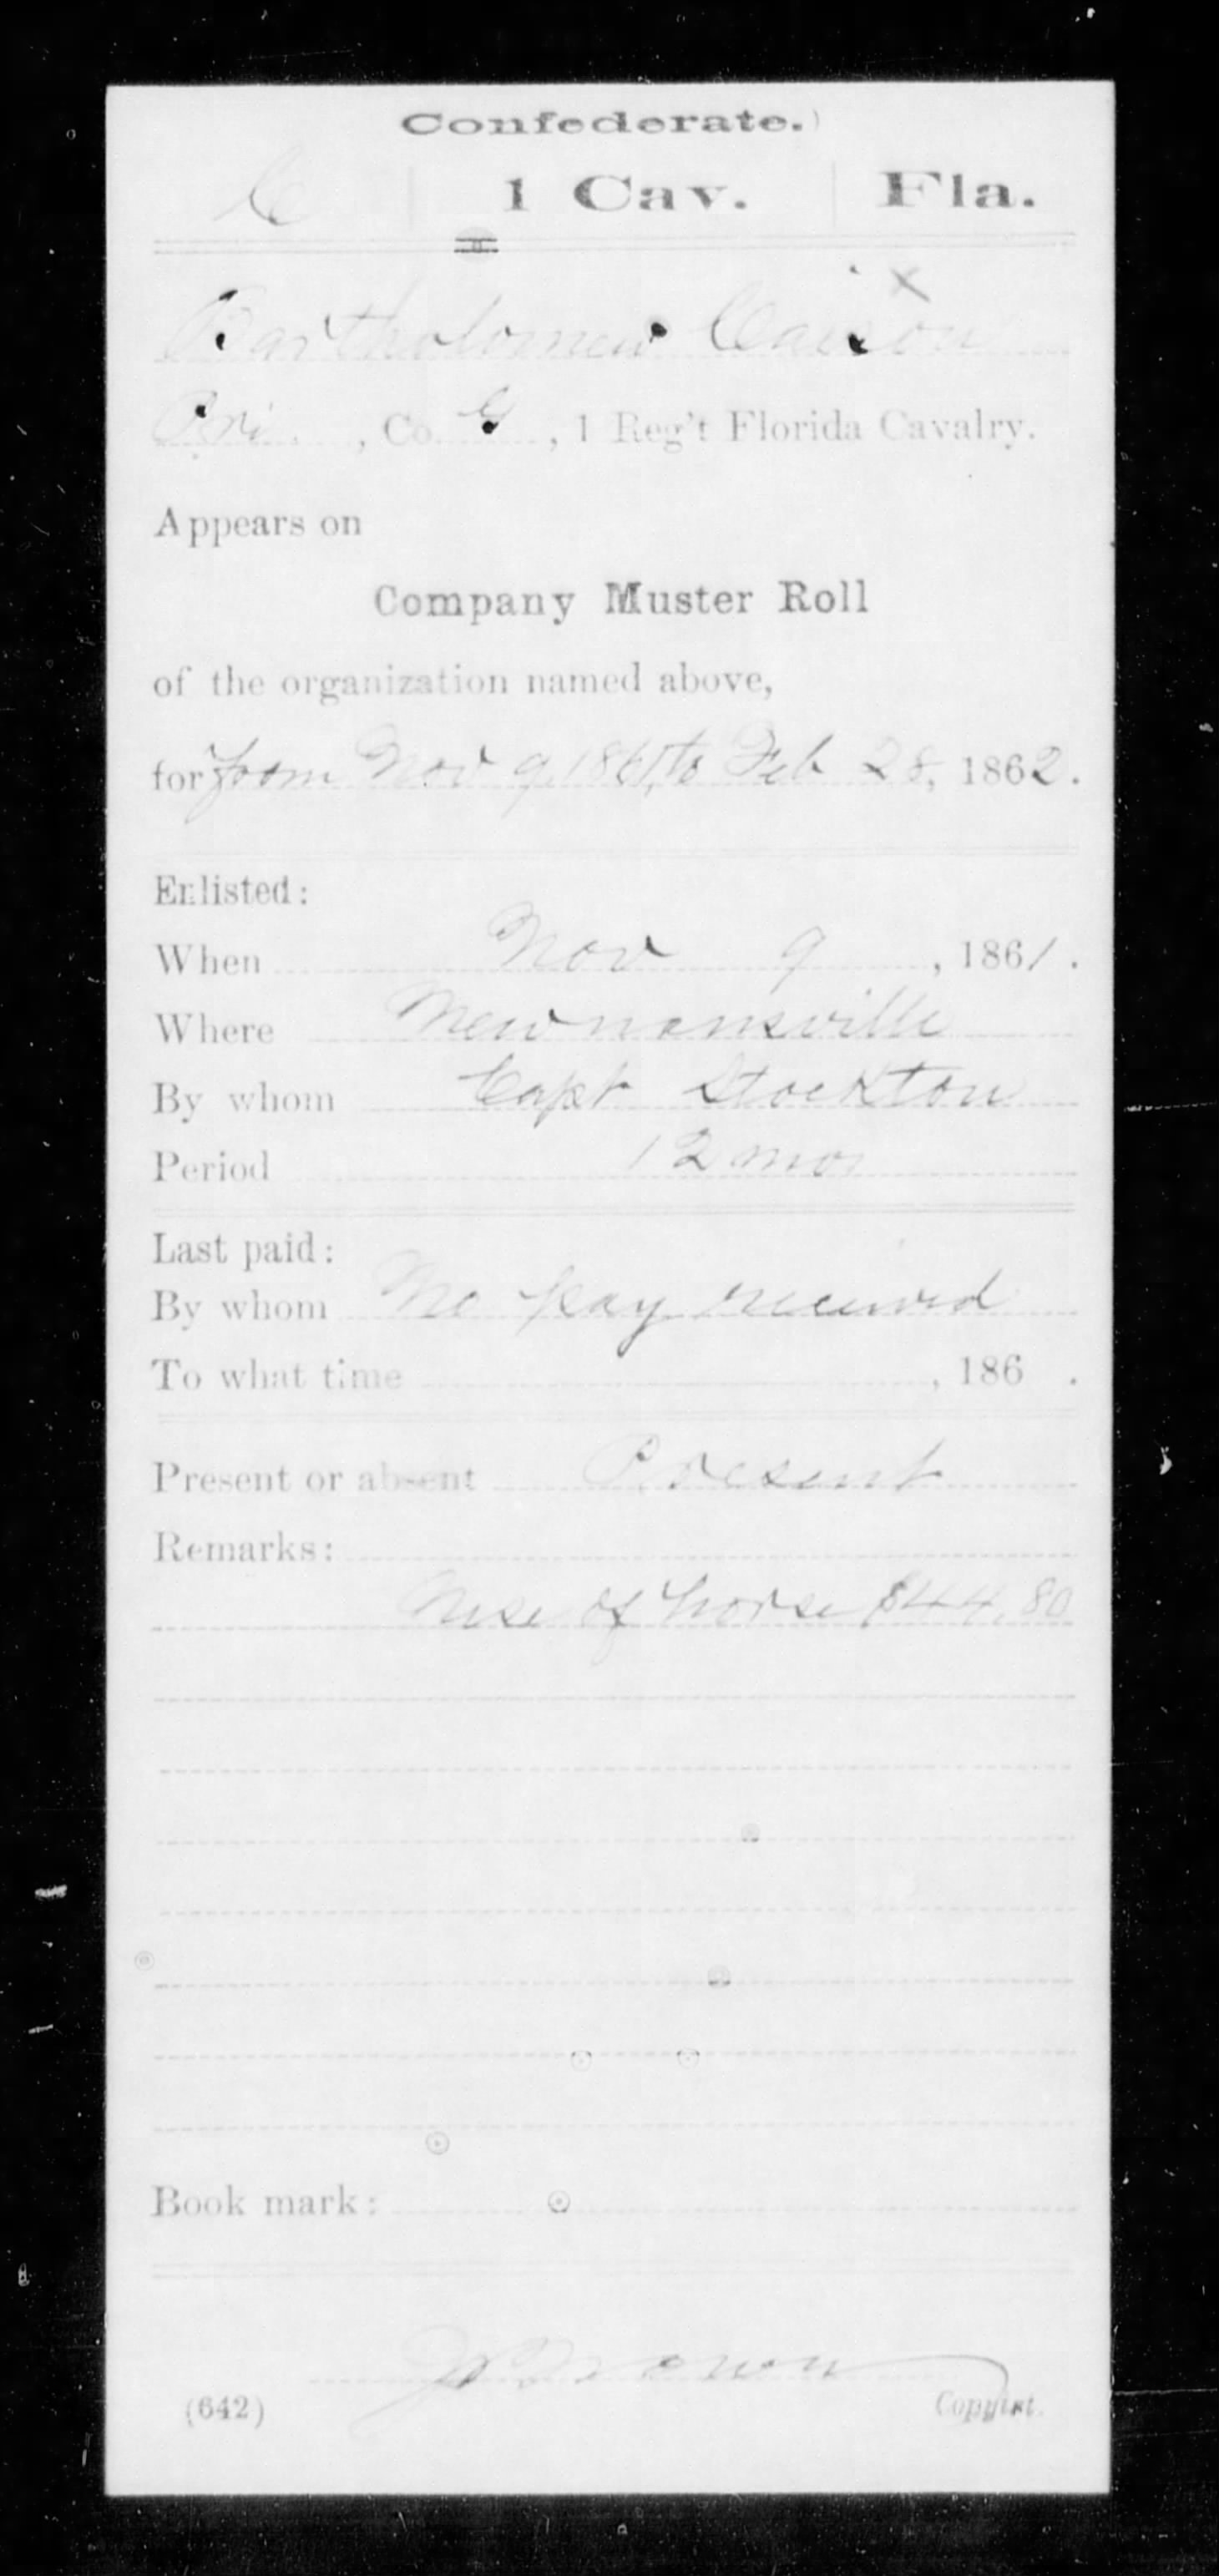 Confederate.
C | 1 Cav. | Fla.
x
Bartholomew Causon
Pri. , Co. G , 1 Reg't Florida Cavalry.
Appears on
Company Muster Roll
of the organization named above,
for from Nov 9, 1861, to Feb 28, 1862.
Enlisted:
When Nov 9 , 1861.
Where Newnansville
By whom Capt Stockton
Period 12 mos
Last paid:
By whom No pay received
To what time , 186 .
Present or absent Present
Remarks:
Use of horse $44.80
Book mark:
Brown
(642) Copyist.